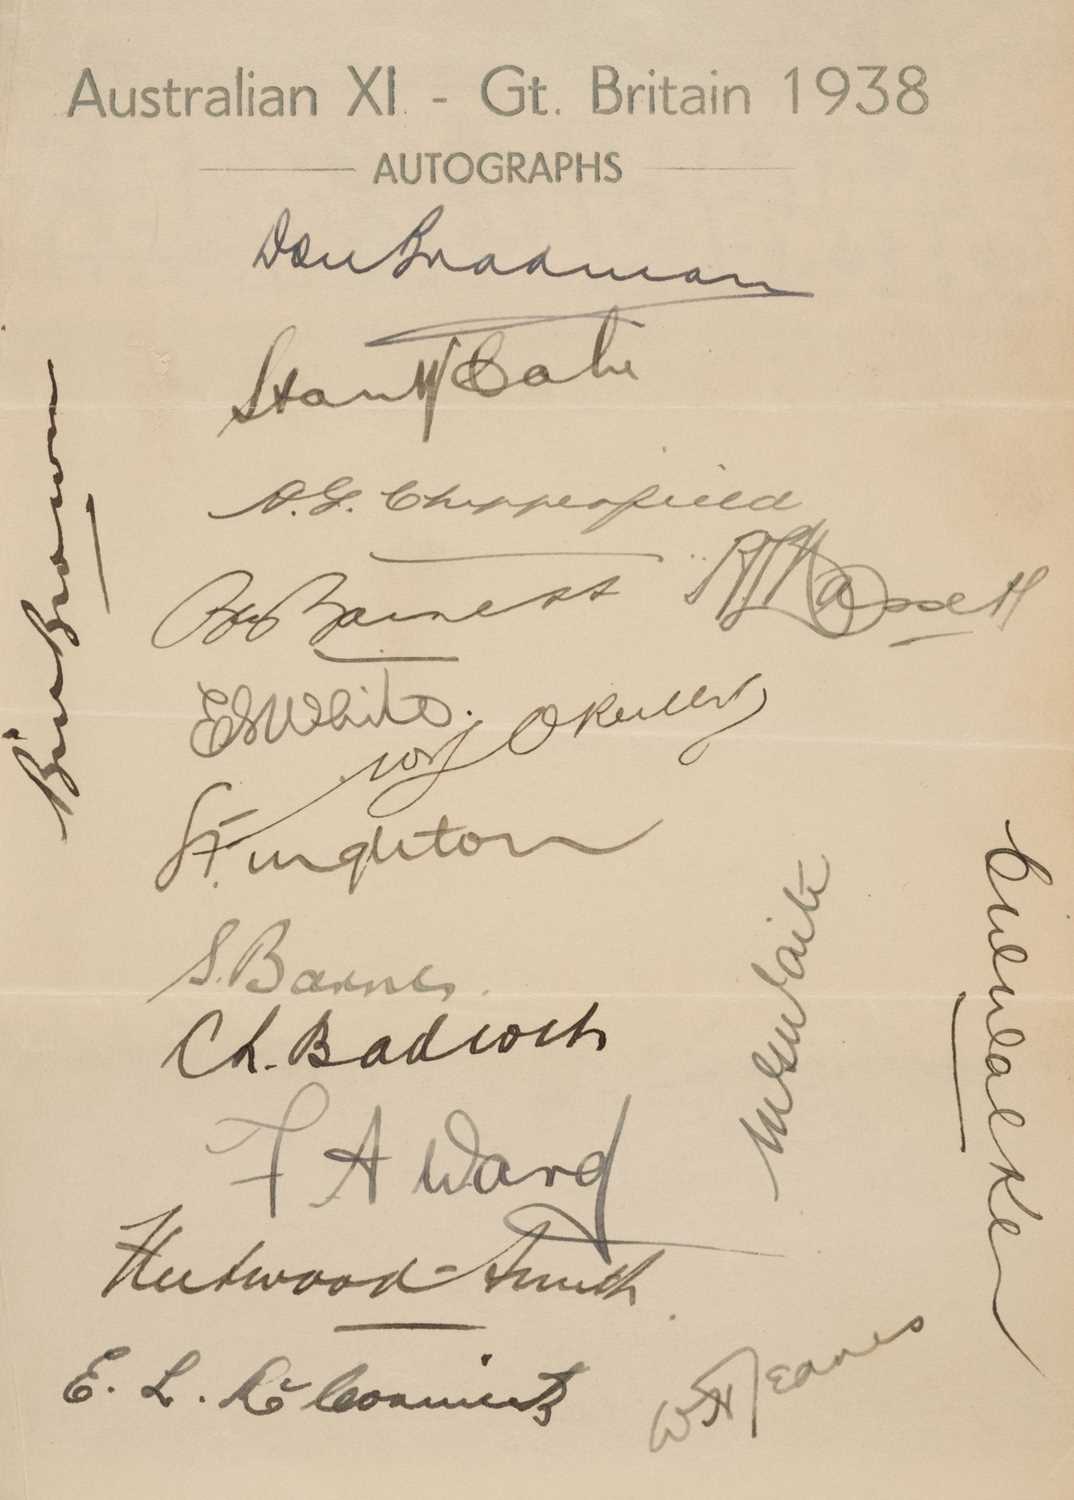 Australian XI - Gt. Britain 1938
AUTOGRAPHS
Don Bradman
Stan McCabe
A.G. Chipperfield
Ben Barnett
A L Hassett
E S White.
W J O'Reilly
J. Fingleton
S. Barnes.
C L. Badcock
F A Ward
Fleetwood-Smith
E. L. McCormick
W H Jeanes
Bill Brown
M G Waite
C W Walker